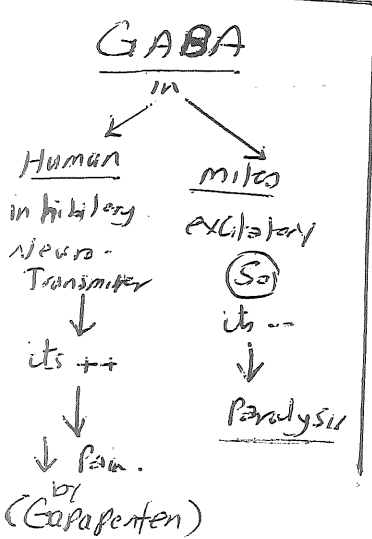 GABA
in
Human
inhibitory
Neuro-
Transmitter
its ++
↓ Pain.
(Gapapenten)
mites
excitatory
So
its --
Paralysis